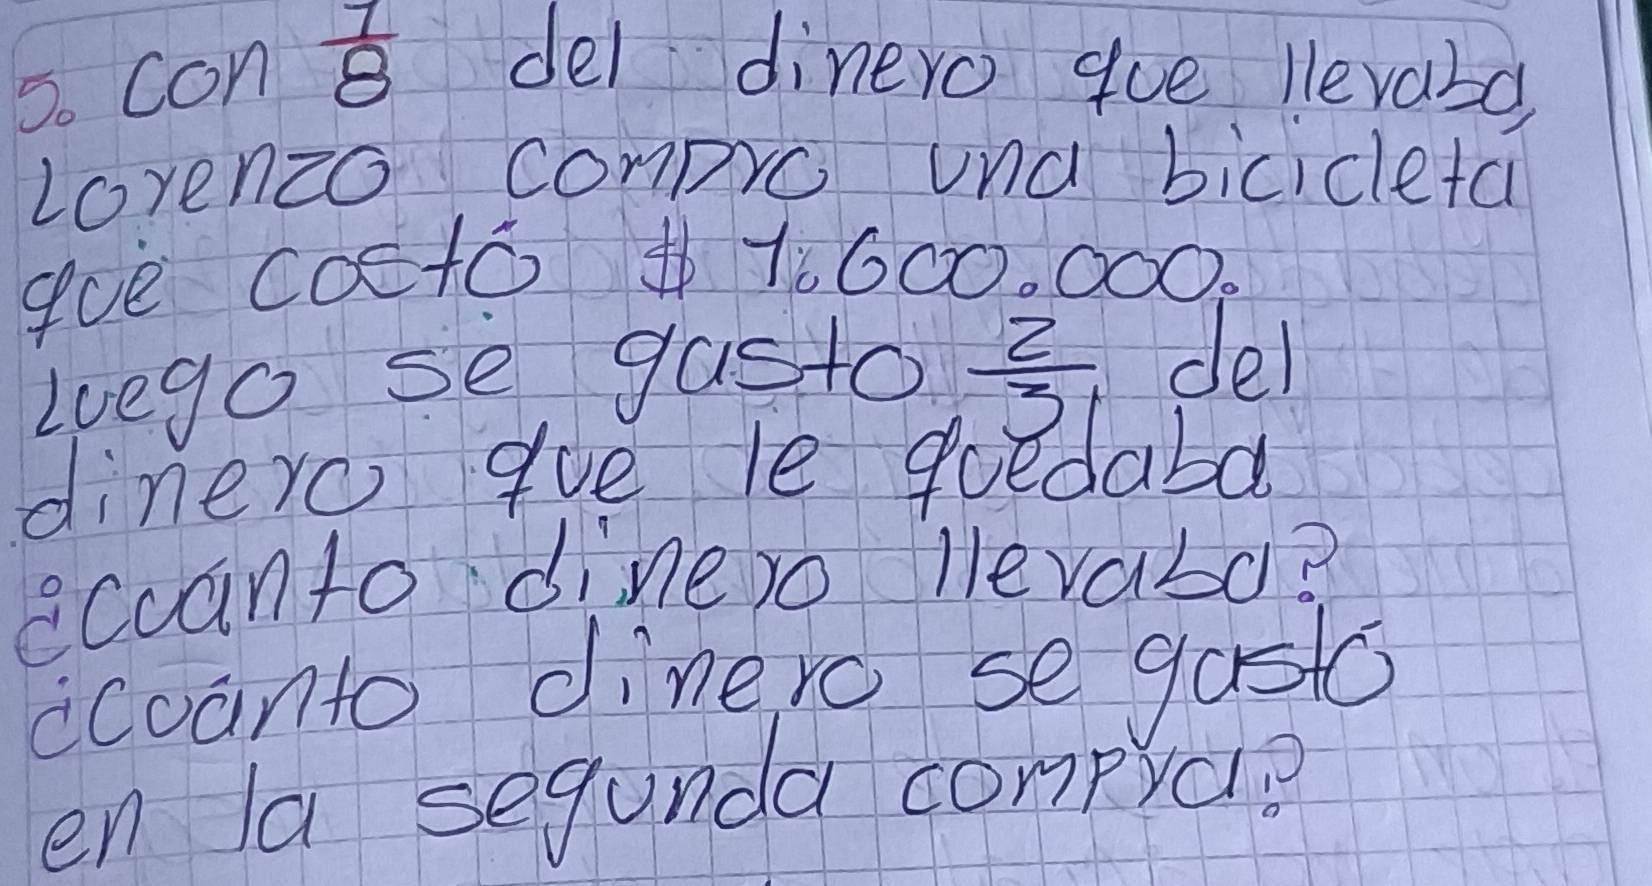 5. con 1/8 del dinero que llevaba,
Lorenzo compro una bicicleta
que costó $ 1.600.000.
Luego se gasto 2/3 del
dinero que le quedaba
¿cuánto dinero llevaba?
¿Cuánto dinero se gastó
en la segunda compra?